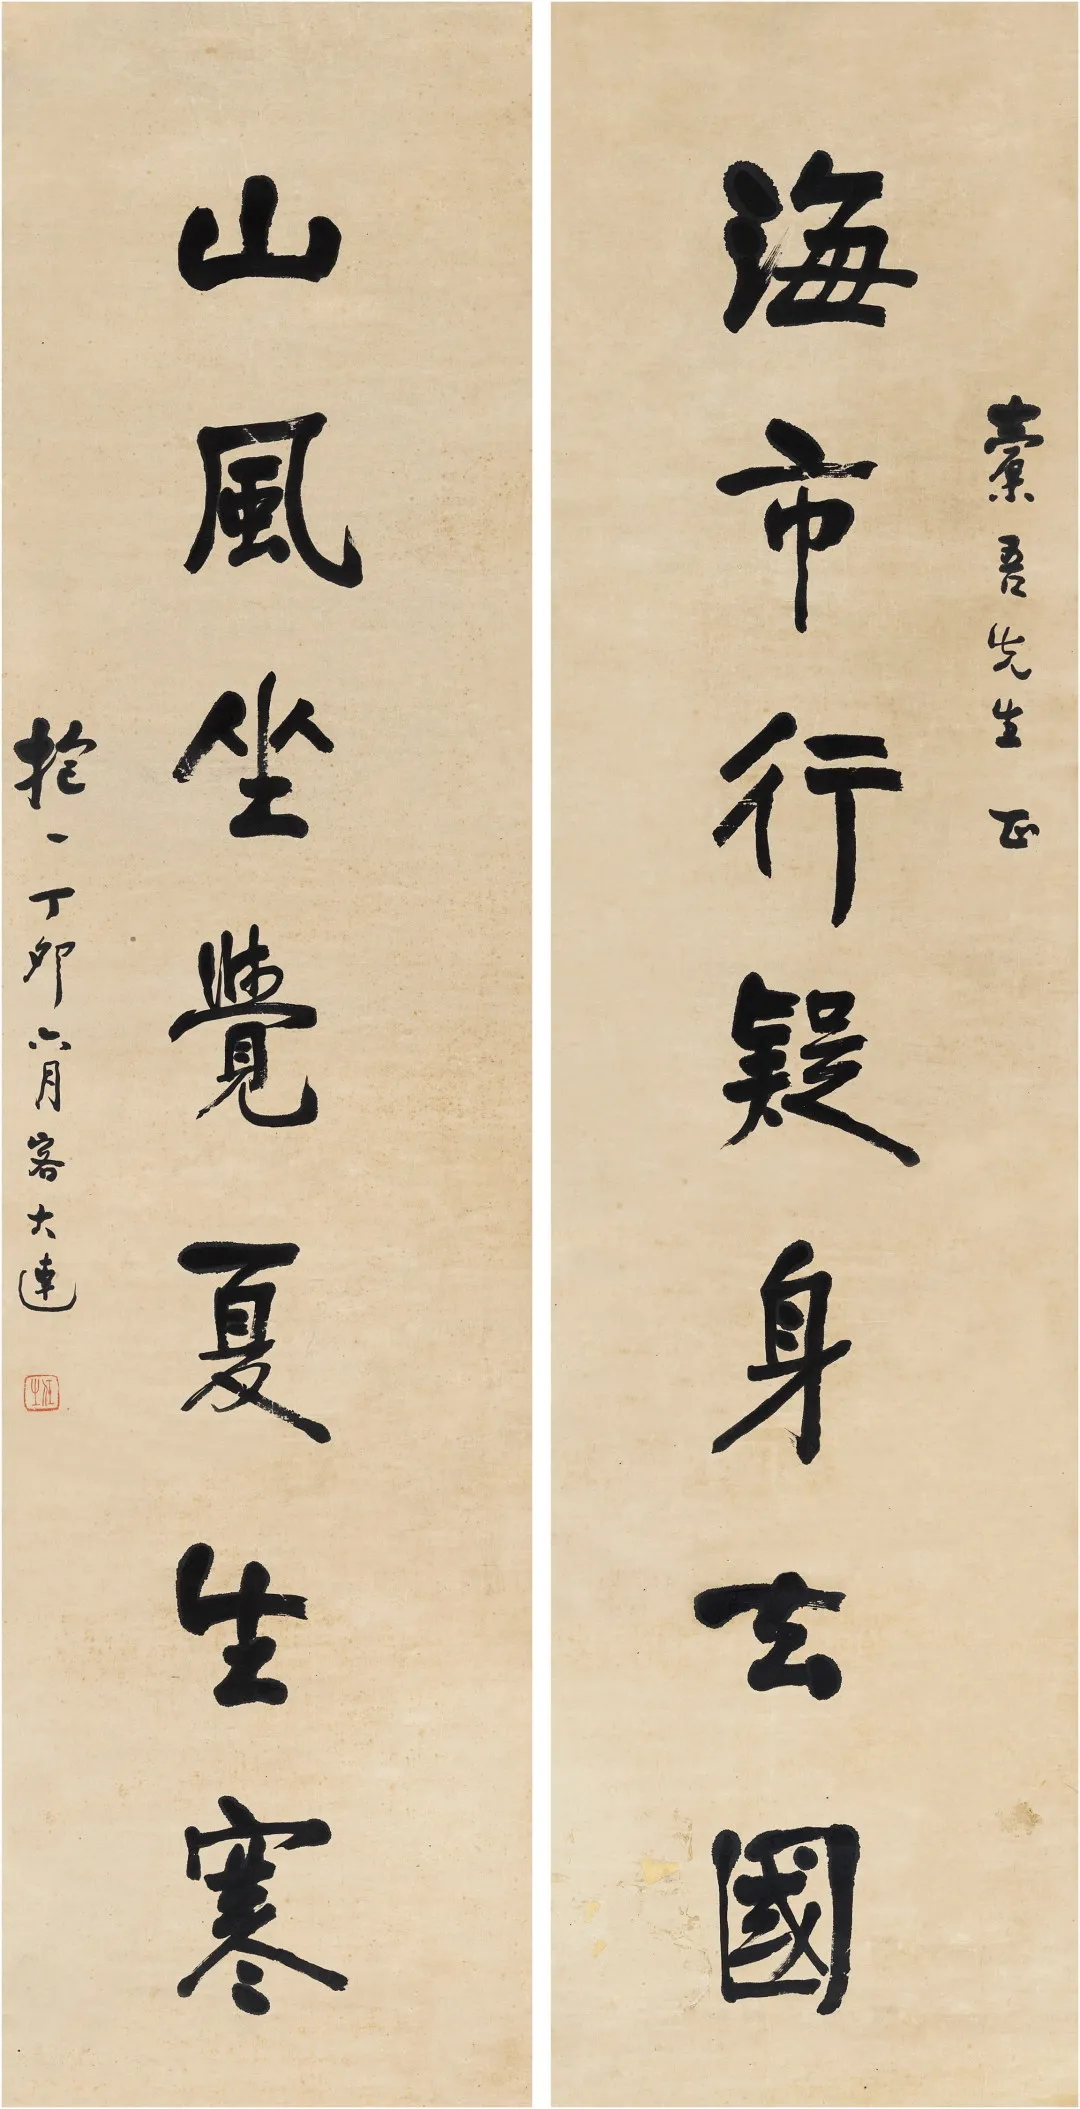 海市行疑身去國
橐吾先生正
山風坐覺夏生寒
抱一丁卯六月客大連